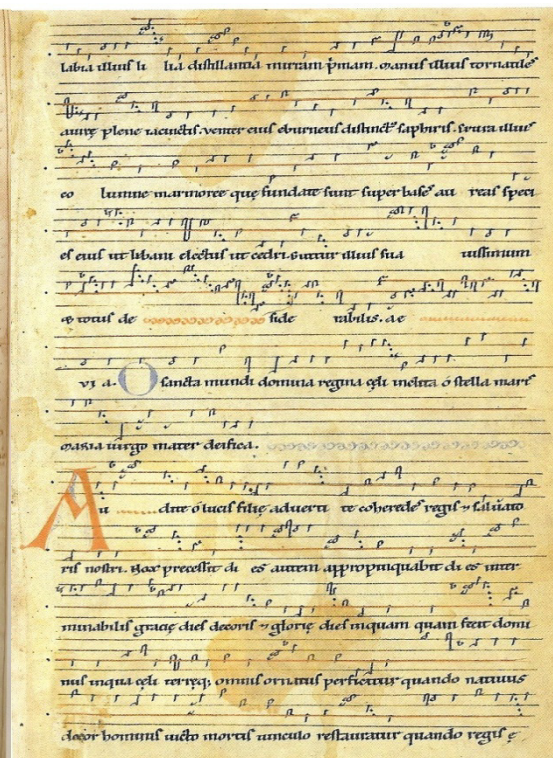 labia illius li lia distillantia mirram p̄mam. manus illius tornatiles
auręe plene iacinctis. venter eius eburneus distinctꝰ saphiris. crura illius
co lumne marmoree quę fundate sunt super bases au reas speci
es eius ut libani electus ut cedri. guttur illius sua uissimum
⁊ totus de side rabilis. ae
vi a. O sancta mundi domina regina cęli inclita ó stella maris
maria uirgo mater deifica.
Au dite ó lucis filię adverti te coheredes regis ⁊ saluato
ris nostri. Nox precessit di es autem appropinquabit di es inter
minabilis gracię dies decoris ⁊ glorię dies inquam quam fecit domi
nus inqua cęli terręq; omnis ornatus perficietur quando nativus
decor hominis uicto mortis uinculo restauratur quando regis ę